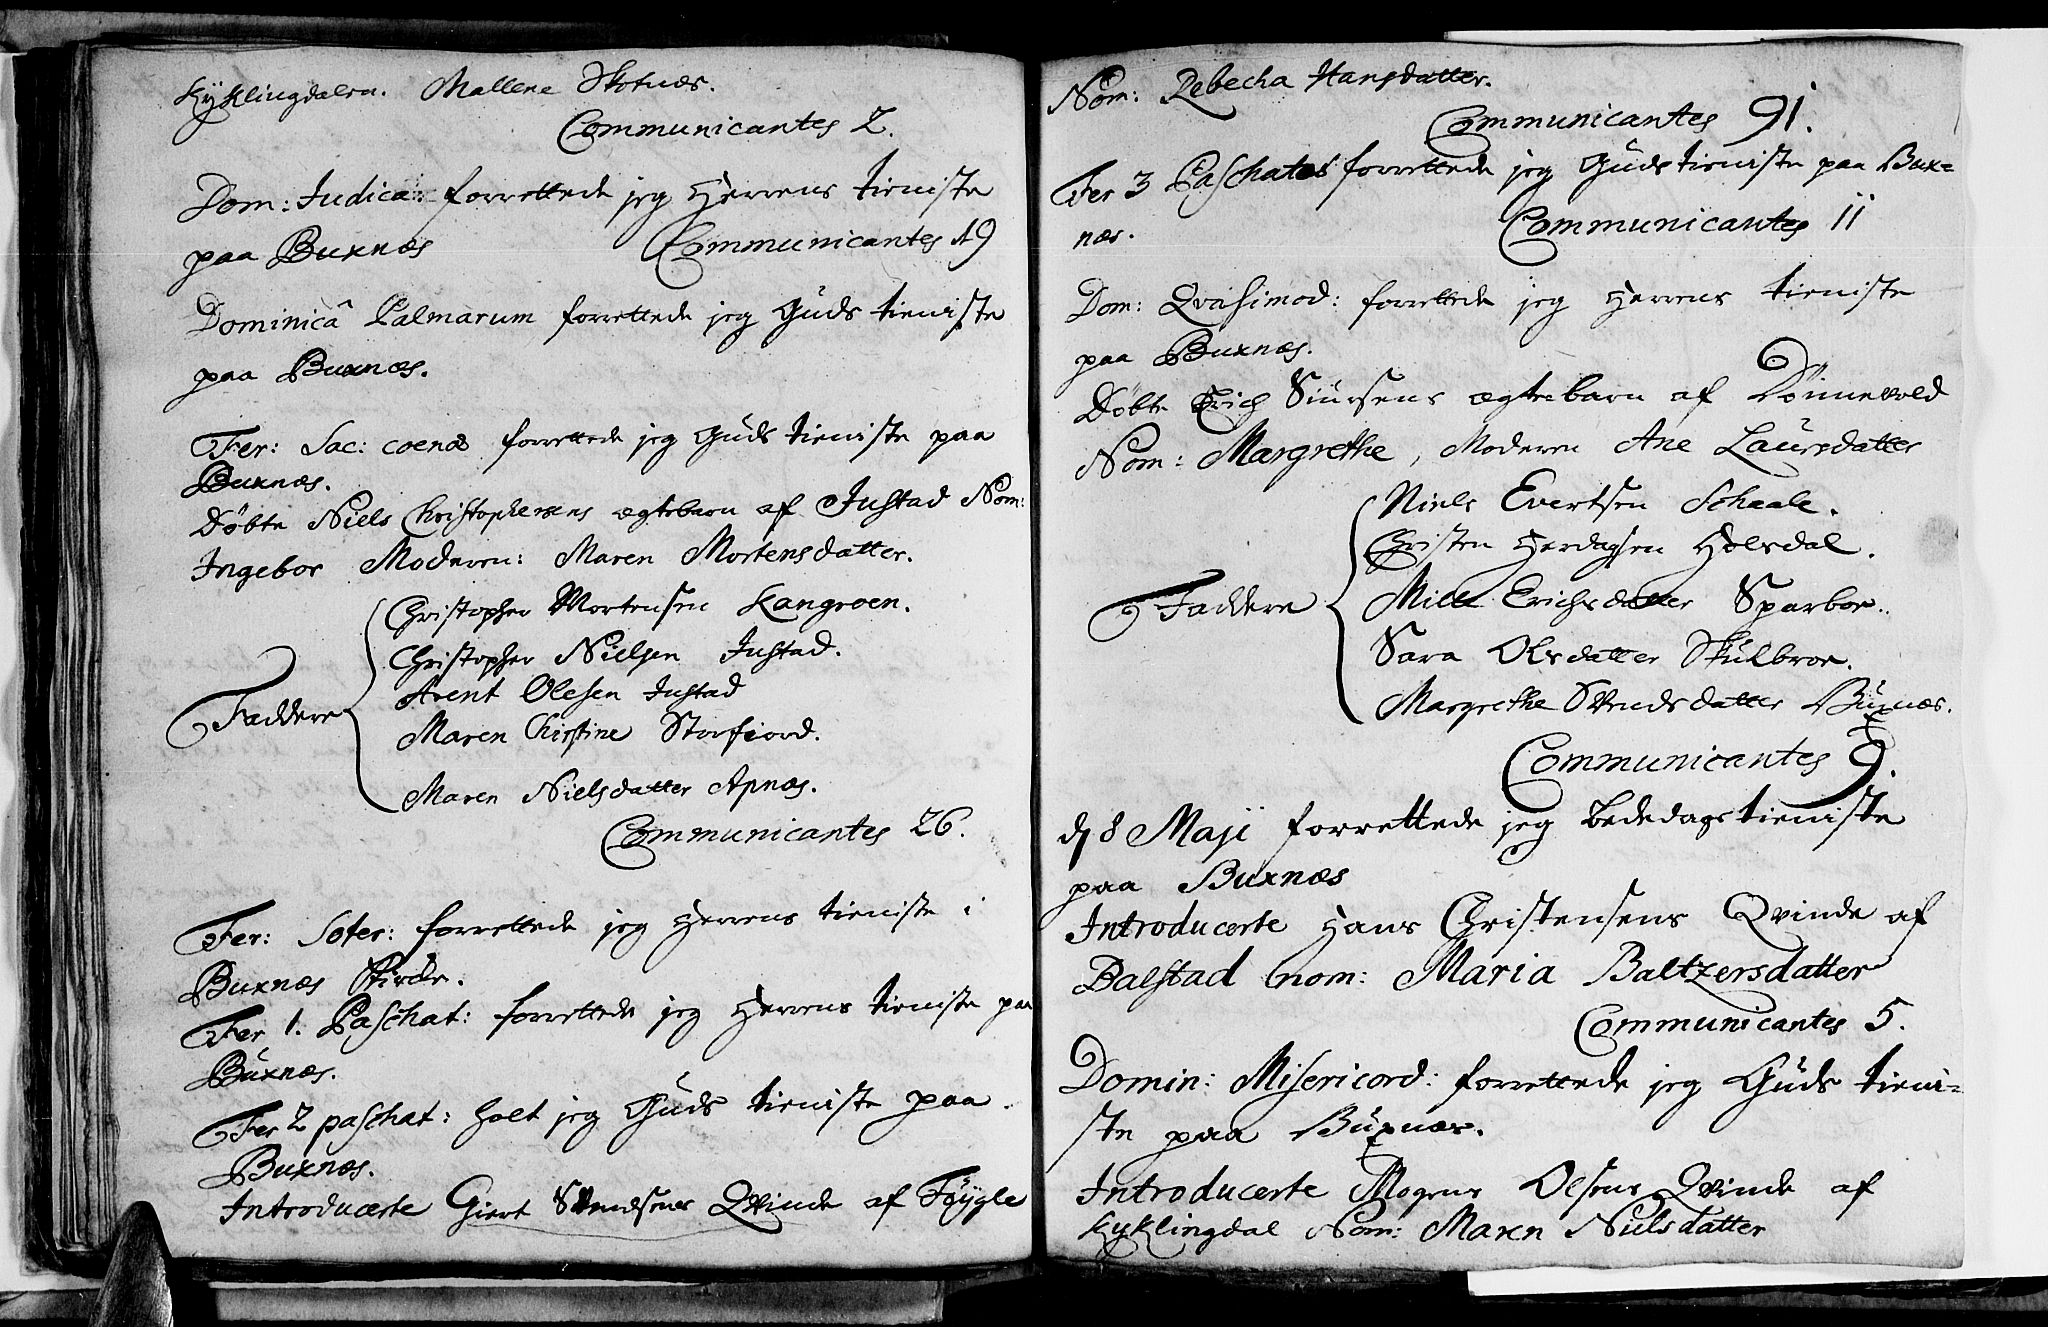 Kyklingdalen. Mallene Skotnæs.
Communicantes 2.
Dom: Judica: forrettede jeg Herrens tieniste
paa Buxnæs Communicantes 19
Dominicâ Palmarum forrettede jeg Guds tieniste
paa Buxnæs.
Fer: Sac: coenæ forrettede jeg Guds tieniste paa
Buxnæs.
Døbte Niels Christophersens ægtebarn af Justad Nom:
Ingebor Moderen: Maren Mortensdatter.
Christopher Mortensen Kangroen.
Christopher Nielsen Justad.
Arent Olesen Justad
Faddere
Maren Chirstine Storfiord.
Maren Nielsdatter Apnæs.
Communicantes 26.
Fer: Soter: forrettede jeg Herrens tieniste i
Buxnæs Kircke.
Fer 1. Paschat: forrettede jeg Herrens tieniste paa
Buxnæs.
Fer 2 paschat: holt jeg Guds tieniste paa
Buxnæs.
Introducerte Giert Svendsens Qvinde af Føygle
Nom: Rebecha Hansdatter.
Communicantes 91.
Fer 3 Paschatos forrettede jeg Guds tieniste paa Bux=
næs. Communicantes 11
Dom: Qvasimod: forrettede jeg Herrens tieniste
paa Buxnæs.
Døbte Erich Siursens ægtebarn af Dønnevold
Nom: Margrethe, Moderen Ane Laursdatter
Niels Evertsen Schaale.
Christen Herdagsen Holsdal.
Faddere
Mille Erichsdatter Sparboe.
Sara Olsdatter Skulbroe.
Margrethe Svendsdatter Buxnæs.
Communicantes 9.
d 8 Maji forrettede jeg Bededags tieniste
paa Buxnæs
Introducerte Hans Christensens Qvinde af
Balstad nom: Maria Baltzersdatter
Communicantes 5.
Domin: Misericord: forrettede jeg Guds tieni=
ste paa Buxnæs.
Introducerte Mogens Olsens Qvinde af
Kyklingdal Nom: Maren Nielsdatter